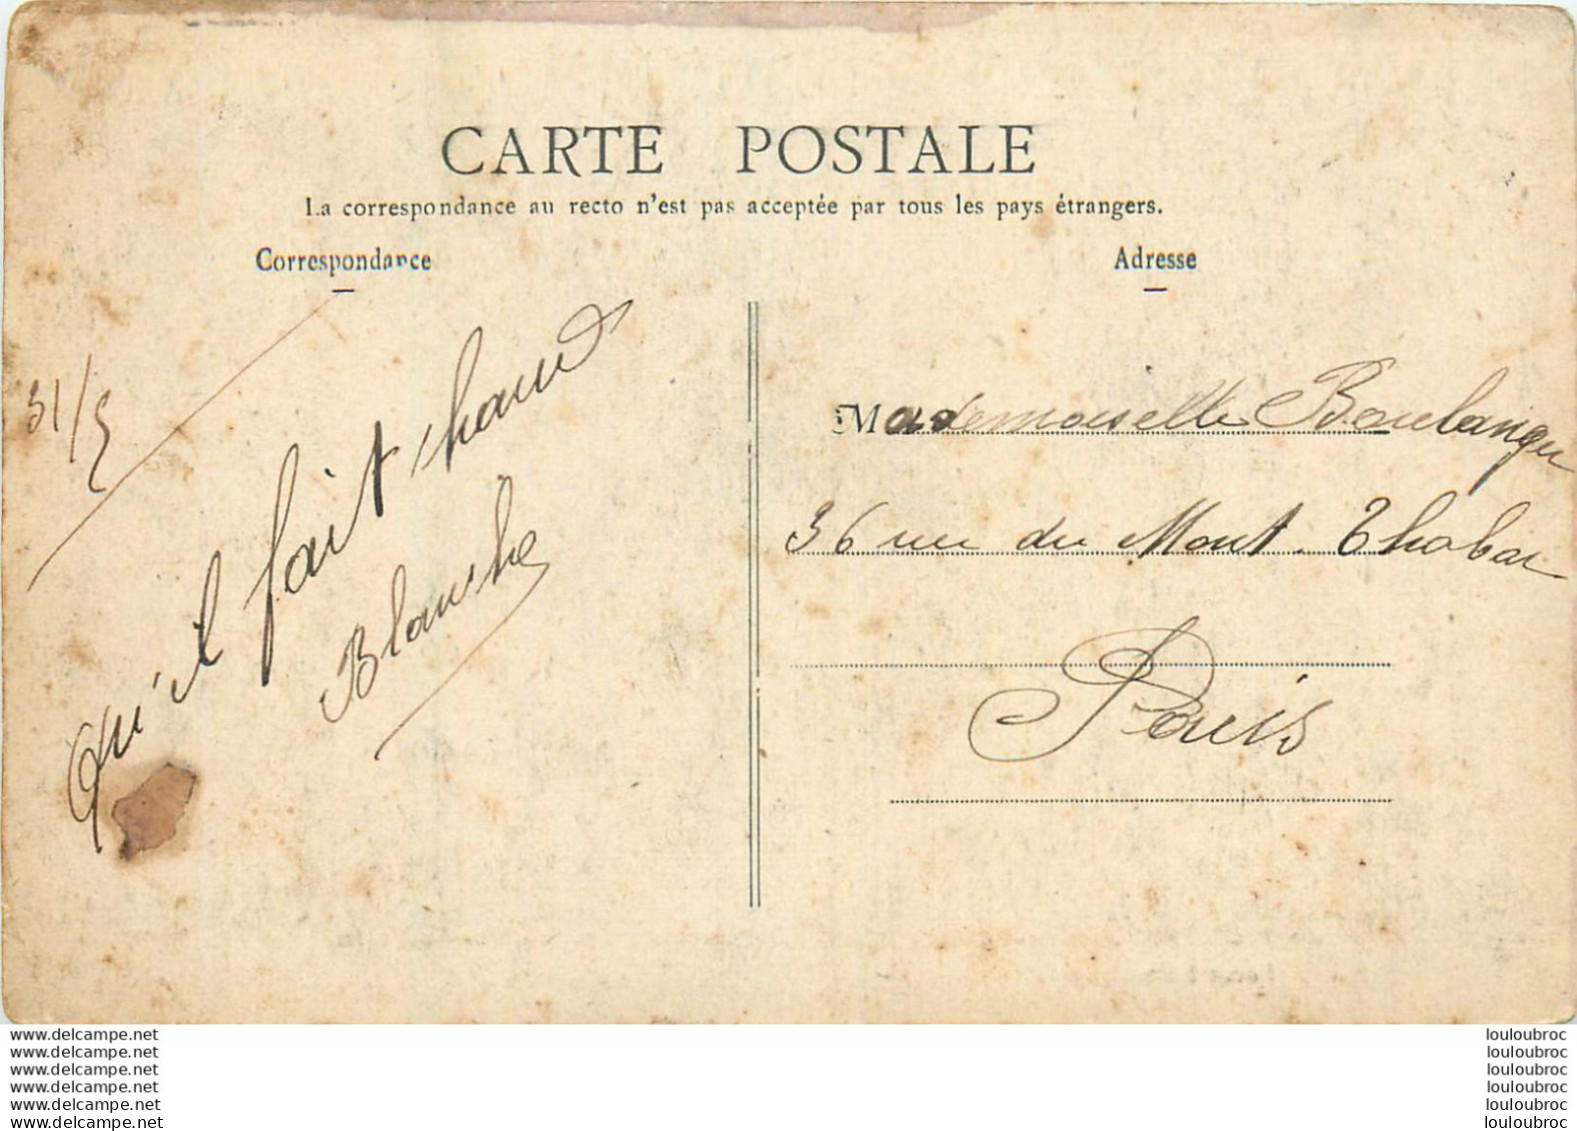 CARTE POSTALE
La correspondance au recto n'est pas acceptée par tous les pays étrangers.
Correspondance
Adresse
31/5
Qu'il fait chaud
Blanche
Mademoiselle Boulanger
36 rue du Mont. Thabor
Paris
www.delcampe.net
www.delcampe.net
www.delcampe.net
www.delcampe.net
www.delcampe.net
www.delcampe.net
louloubroc
louloubroc
louloubroc
louloubroc
louloubroc
louloubroc